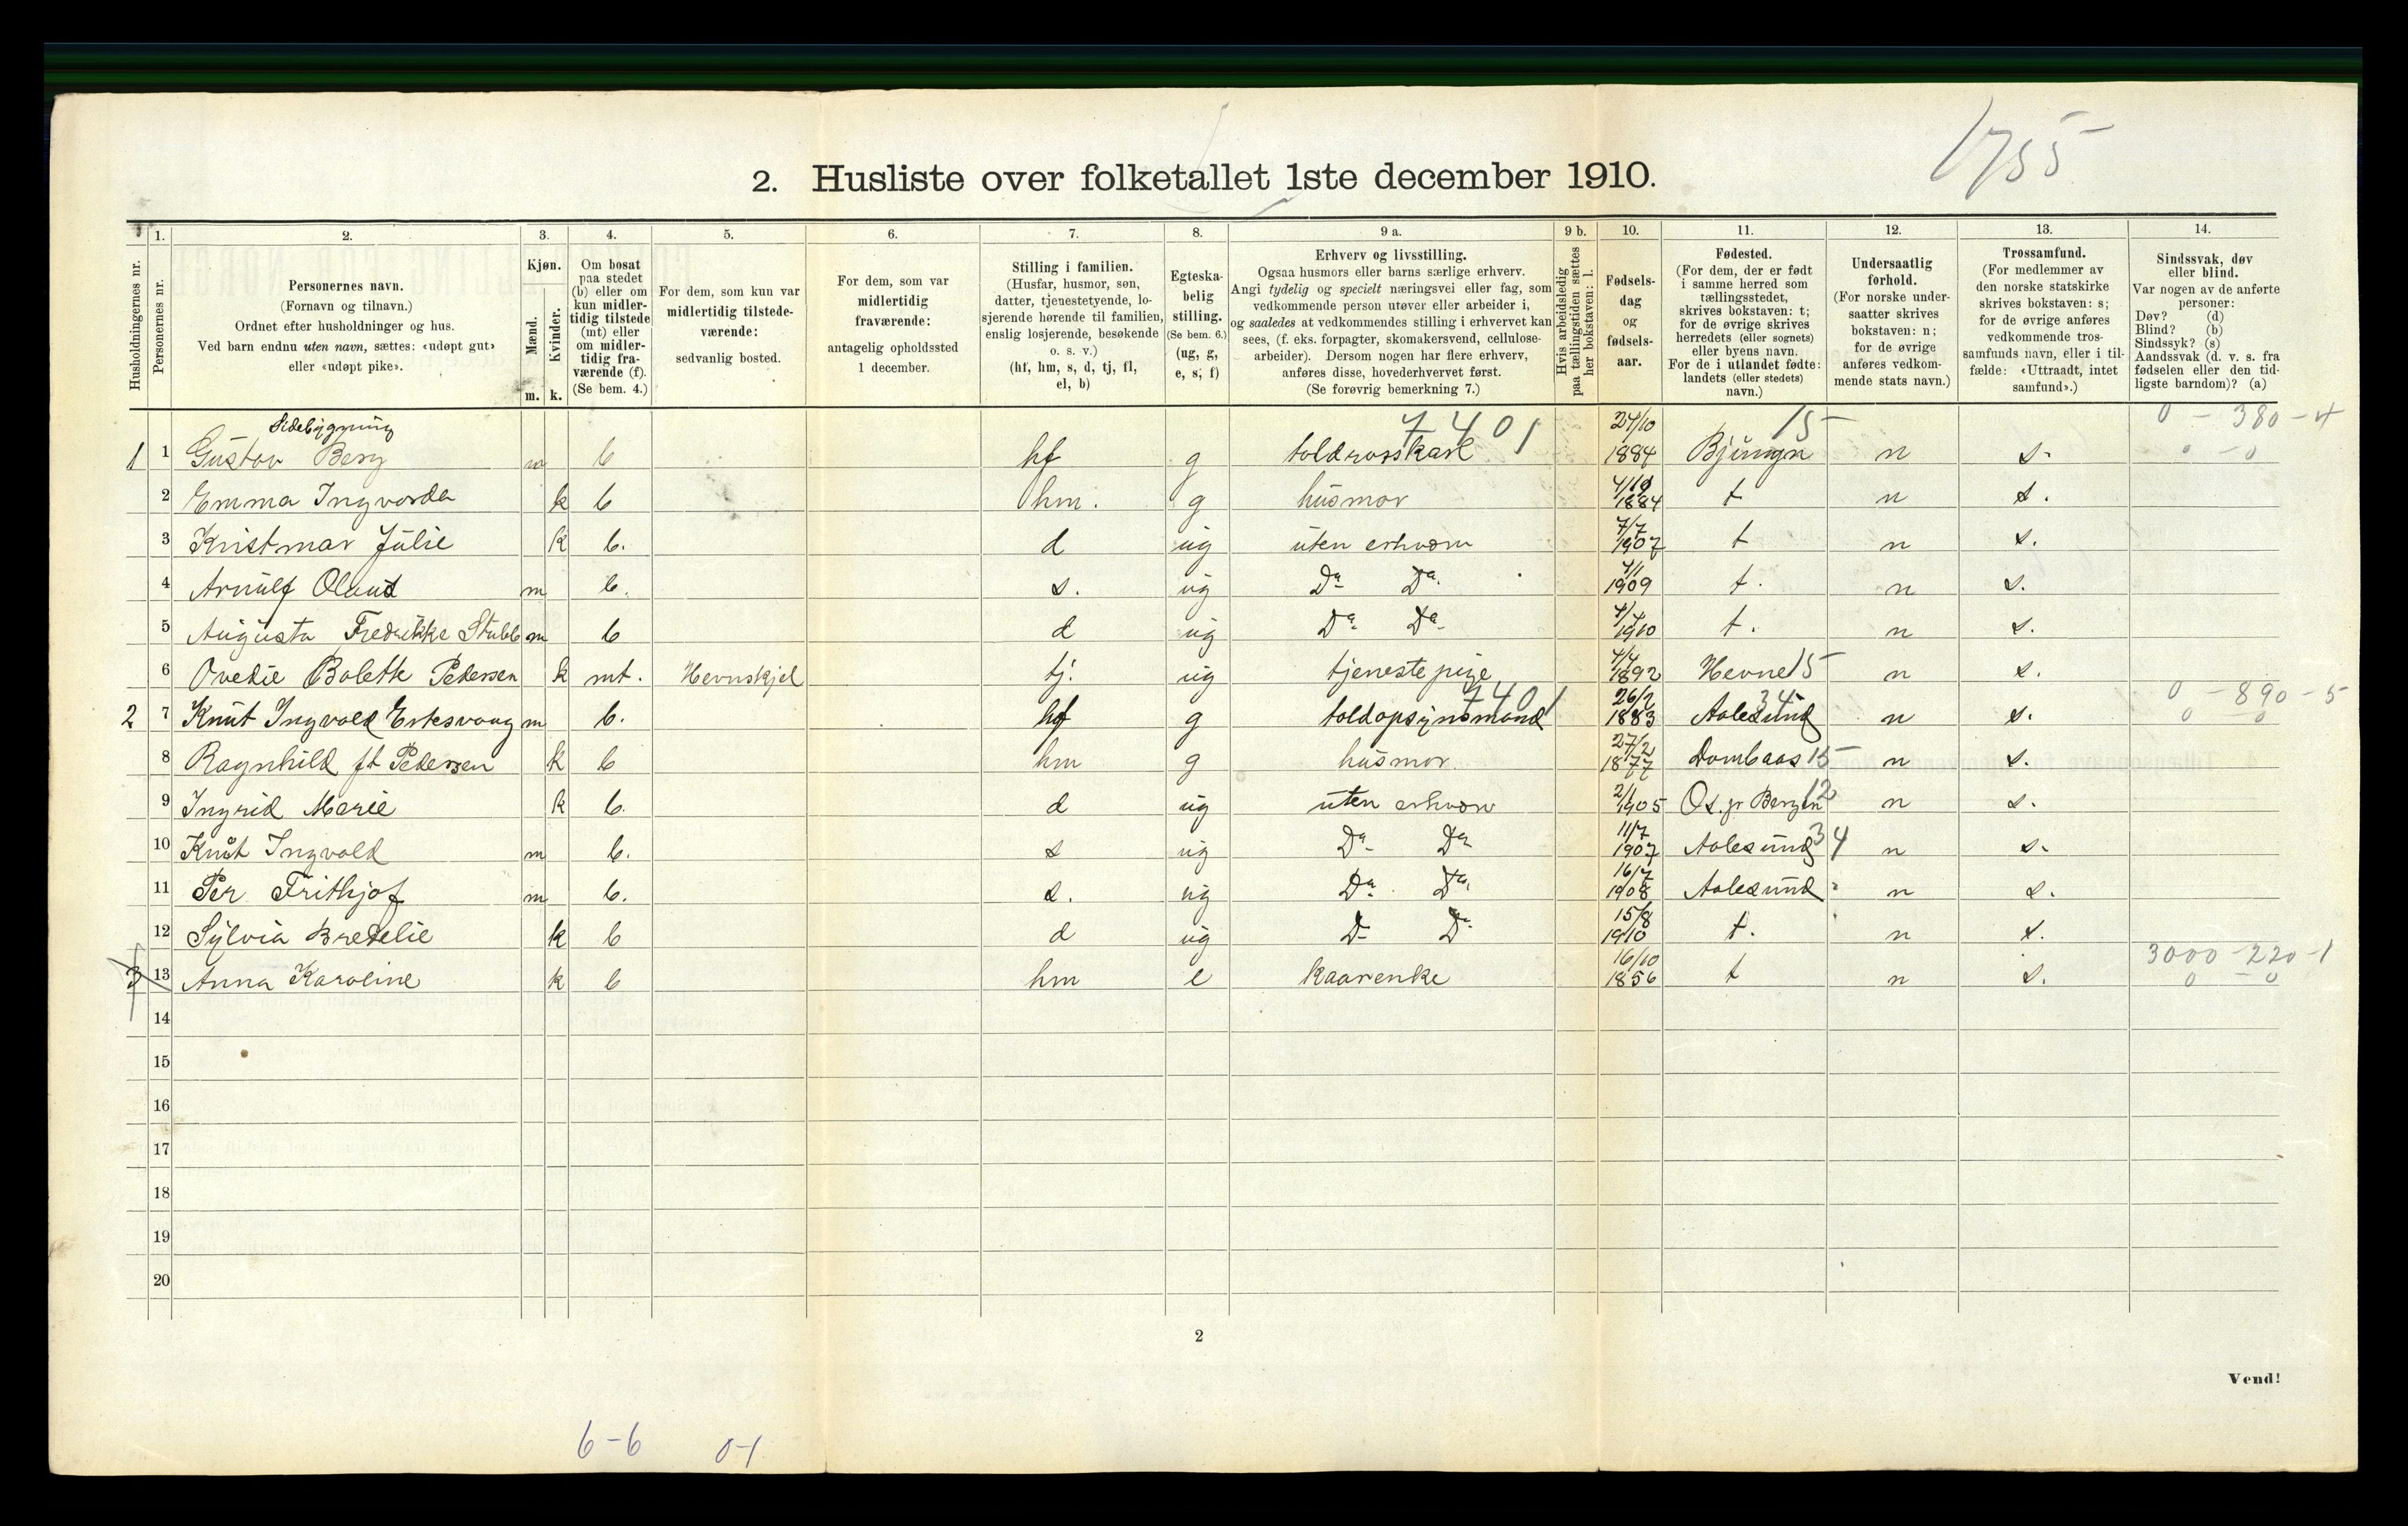 1755
2. Husliste over folketallet 1ste december 1910.
Husholdningernes nr.
1. Personernes nr.
2. Personernes navn.
(Fornavn og tilnavn.)
Ordnet efter husholdninger og hus.
Ved barn endnu uten navn, sættes: «udøpt gut»
eller «udøpt pike».
3. Kjøn.
Mænd. m.
Kvinder. k.
4. Om bosat
paa stedet
(b) eller om
kun midler-
tidig tilstede
(mt) eller
om midler-
tidig fra-
værende (f).
(Se bem. 4.)
5. For dem, som kun var
midlertidig tilstede-
værende:
sedvanlig bosted.
6. For dem, som var
midlertidig
fraværende:
antagelig opholdssted
1 december.
7. Stilling i familien.
(Husfar, husmor, søn,
datter, tjenestetyende, lo-
sjerende hørende til familien,
enslig losjerende, besøkende
o. s. v.)
(hf, hm, s, d, tj, fl,
el, b)
8. Egteska-
belig
stilling.
(Se bem. 6.)
(ug, g,
e, s, f)
9 a. Erhverv og livsstilling.
Ogsaa husmors eller barns særlige erhverv.
Angi tydelig og specielt næringsvei eller fag, som
vedkommende person utøver eller arbeider i,
og saaledes at vedkommendes stilling i erhvervet kan
sees, (f. eks. forpagter, skomakersvend, cellulose-
arbeider). Dersom nogen har flere erhverv,
anføres disse, hovederhvervet først.
(Se forøvrig bemerkning 7.)
9 b. Hvis arbeidsledig
paa tællingstiden sættes
her bokstaven: l.
10. Fødsels-
dag
og
fødsels-
aar.
11. Fødested.
(For dem, der er født
i samme herred som
tællingsstedet,
skrives bokstaven: t;
for de øvrige skrives
herredets (eller sognets)
eller byens navn.
For de i utlandet fødte:
landets (eller stedets)
navn.)
12. Undersaatlig
forhold.
(For norske under-
saatter skrives
bokstaven: n;
for de øvrige
anføres vedkom-
mende stats navn.)
13. Trossamfund.
(For medlemmer av
den norske statskirke
skrives bokstaven: s;
for de øvrige anføres
vedkommende tros-
samfunds navn, eller i til-
fælde: «Uttraadt, intet
samfund».)
14. Sindssvak, døv
eller blind.
Var nogen av de anførte
personer:
Døv? (d)
Blind? (b)
Sindssyk? (s)
Aandssvak (d. v. s. fra
fødselen eller den tid-
ligste barndom)? (a)
Sidebygning 7401 24/10 15 0 - 380 - 4
1 1 Gustav Berg m b hf g toldrosskarl 1884 Bjungn n s. 0 - 0
2 Emma Ingvarda k b hm. g husmor 4/10 1884 t n s.
3 Kristmar Julie k b. d ug uten erhverv 7/7 1907 t n s.
4 Arnulf Olaus m b. s. ug Do Do. 1909 t. n s.
5 Augusta Fredrikke Stubb m b d ug Do Do 1910 t. n s.
6 Ovedie Bolette Pedersen k mt. Hevnskjel tj. ug tjenestepige 4/4 1892 Hevne 15 n s.
7401 34 0 - 890 - 5
2 7 Knut Ingvald Estesvaag m b. hf g toldopsynsmand 26/2 1883 Aalesund n s. 0 0
8 Ragnhild ft Pedersen k b hm g husmor 27/2 1877 Dombaas 15 n s.
9 Ingrid Marie k b. d ug uten erhverv 2/1 1905 Os. pr Bergen 12 n s.
10 Knut Ingvald m b. s ug Do Do 11/7 1907 Aalesund 34 n s.
11 Per Frithjof m b. s. ug Do. Do. 16/7 1908 Aalesund n s.
12 Sylvia Bredelie k b d ug D D 15/8 1910 t. n s.
3000 - 220 - 1
3 13 Anna Karoline k b hm e kaarenke 16/10 1856 t n s. 0 - 0
14
15
16
17
18
19
20
2
Vend!
6-6 0-1